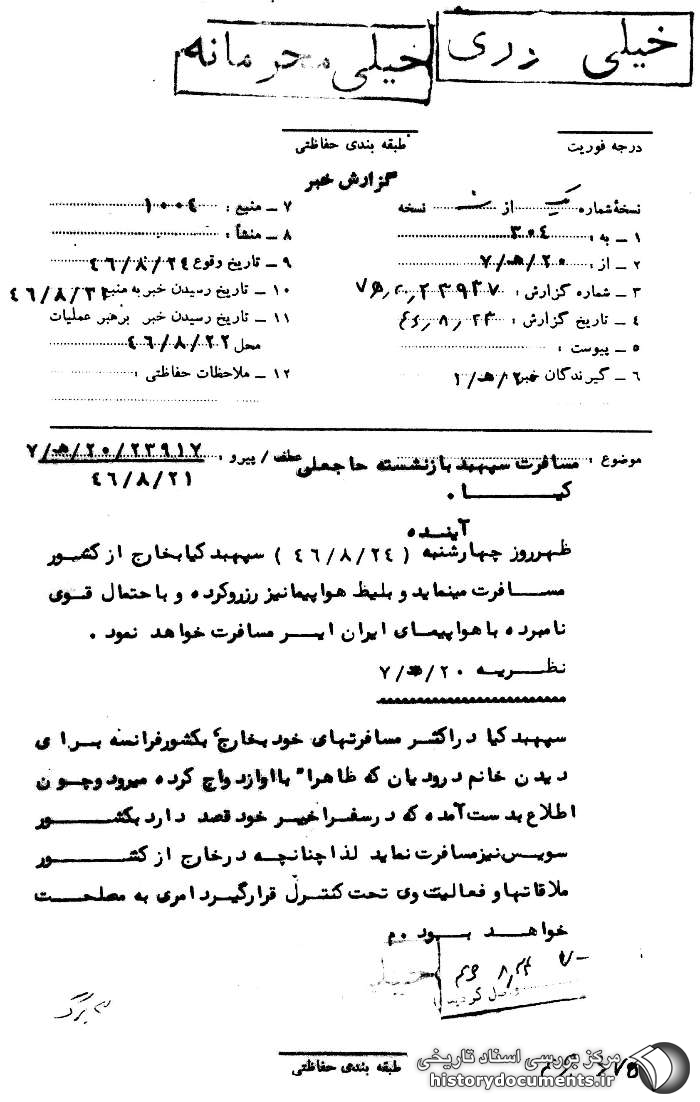 خیلی فوری
خیلی محرمانه
درجه فوریت
طبقه بندی حفاظتی
گزارش خبر
نسخهٔ شماره یک از نسخه
۱ ـ به : ۳۰۴
۲ ـ از : ۲۰/ﻫ/۷
۳ ـ شماره گزارش :
۴ ـ تاریخ گزارش : ۴۶٫۸٫۲۳
۵ ـ پیوست :
۶ ـ گیرندگان خبر : ۲۰/ﻫ/۲
۷ ـ منبع : ۱۰۰۴
۸ ـ منشأ :
۹ ـ تاریخ وقوع ۴۶/۸/۲۴
۱۰ ـ تاریخ رسیدن خبر به منبع
۱۱ ـ تاریخ رسیدن خبر برهبر عملیات
محل ۴۶/۸/۲۲
۱۲ ـ ملاحظات حفاظتی :
موضوع : مسافرت سپهبد بازنشسته حاجعلی
کیـا .
عطف / پیرو : ۷/ﻫ/۲۰/۲۳۹۱۷
۴۶/۸/۲۱
آینده
ظهرروز چهارشنبه ( ۴۶/۸/۲۴ ) سپهبد کیا بخارج از کشور
مسافرت مینماید و بلیط هواپیما نیز رزرو کرده و با احتمال قوی
نامبرده با هواپیمای ایران ایر مسافرت خواهد نمود .
نظریه ۷/ﻫ/۲۰
سپهبد کیا در اکثر مسافرتهای خود بخارج بکشور فرانسه برای
دیدن خانم درودیان که ظاهرا" با او ازدواج کرده میرود و چون
اطلاع بدست آمده که در سفر اخیر خود قصد دارد بکشور
سویس نیز مسافرت نماید لذا چنانچه در خارج از کشور
ملاقاتها و فعالیت وی تحت کنترل قرار گیرد امری به مصلحت
خواهد بود . م
واصل گردید
خیلی
۳ برگ
طبقه بندی حفاظتی
مرکز بررسی اسناد تاریخی
historydocuments.ir